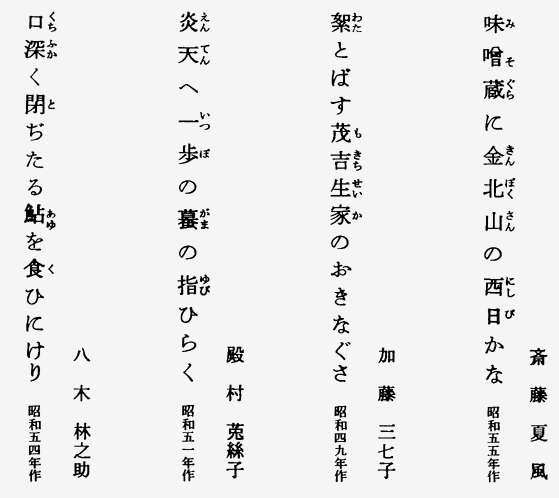 斎藤夏風
味噌蔵に金北山の西日かな 昭和五五年作
加藤三七子
絮とばす茂吉生家のおきなぐさ 昭和四九年作
殿村莵絲子
炎天へ一歩の蟇の指ひらく 昭和五一年作
八木林之助
口深く閉ぢたる鮎を食ひにけり 昭和五四年作